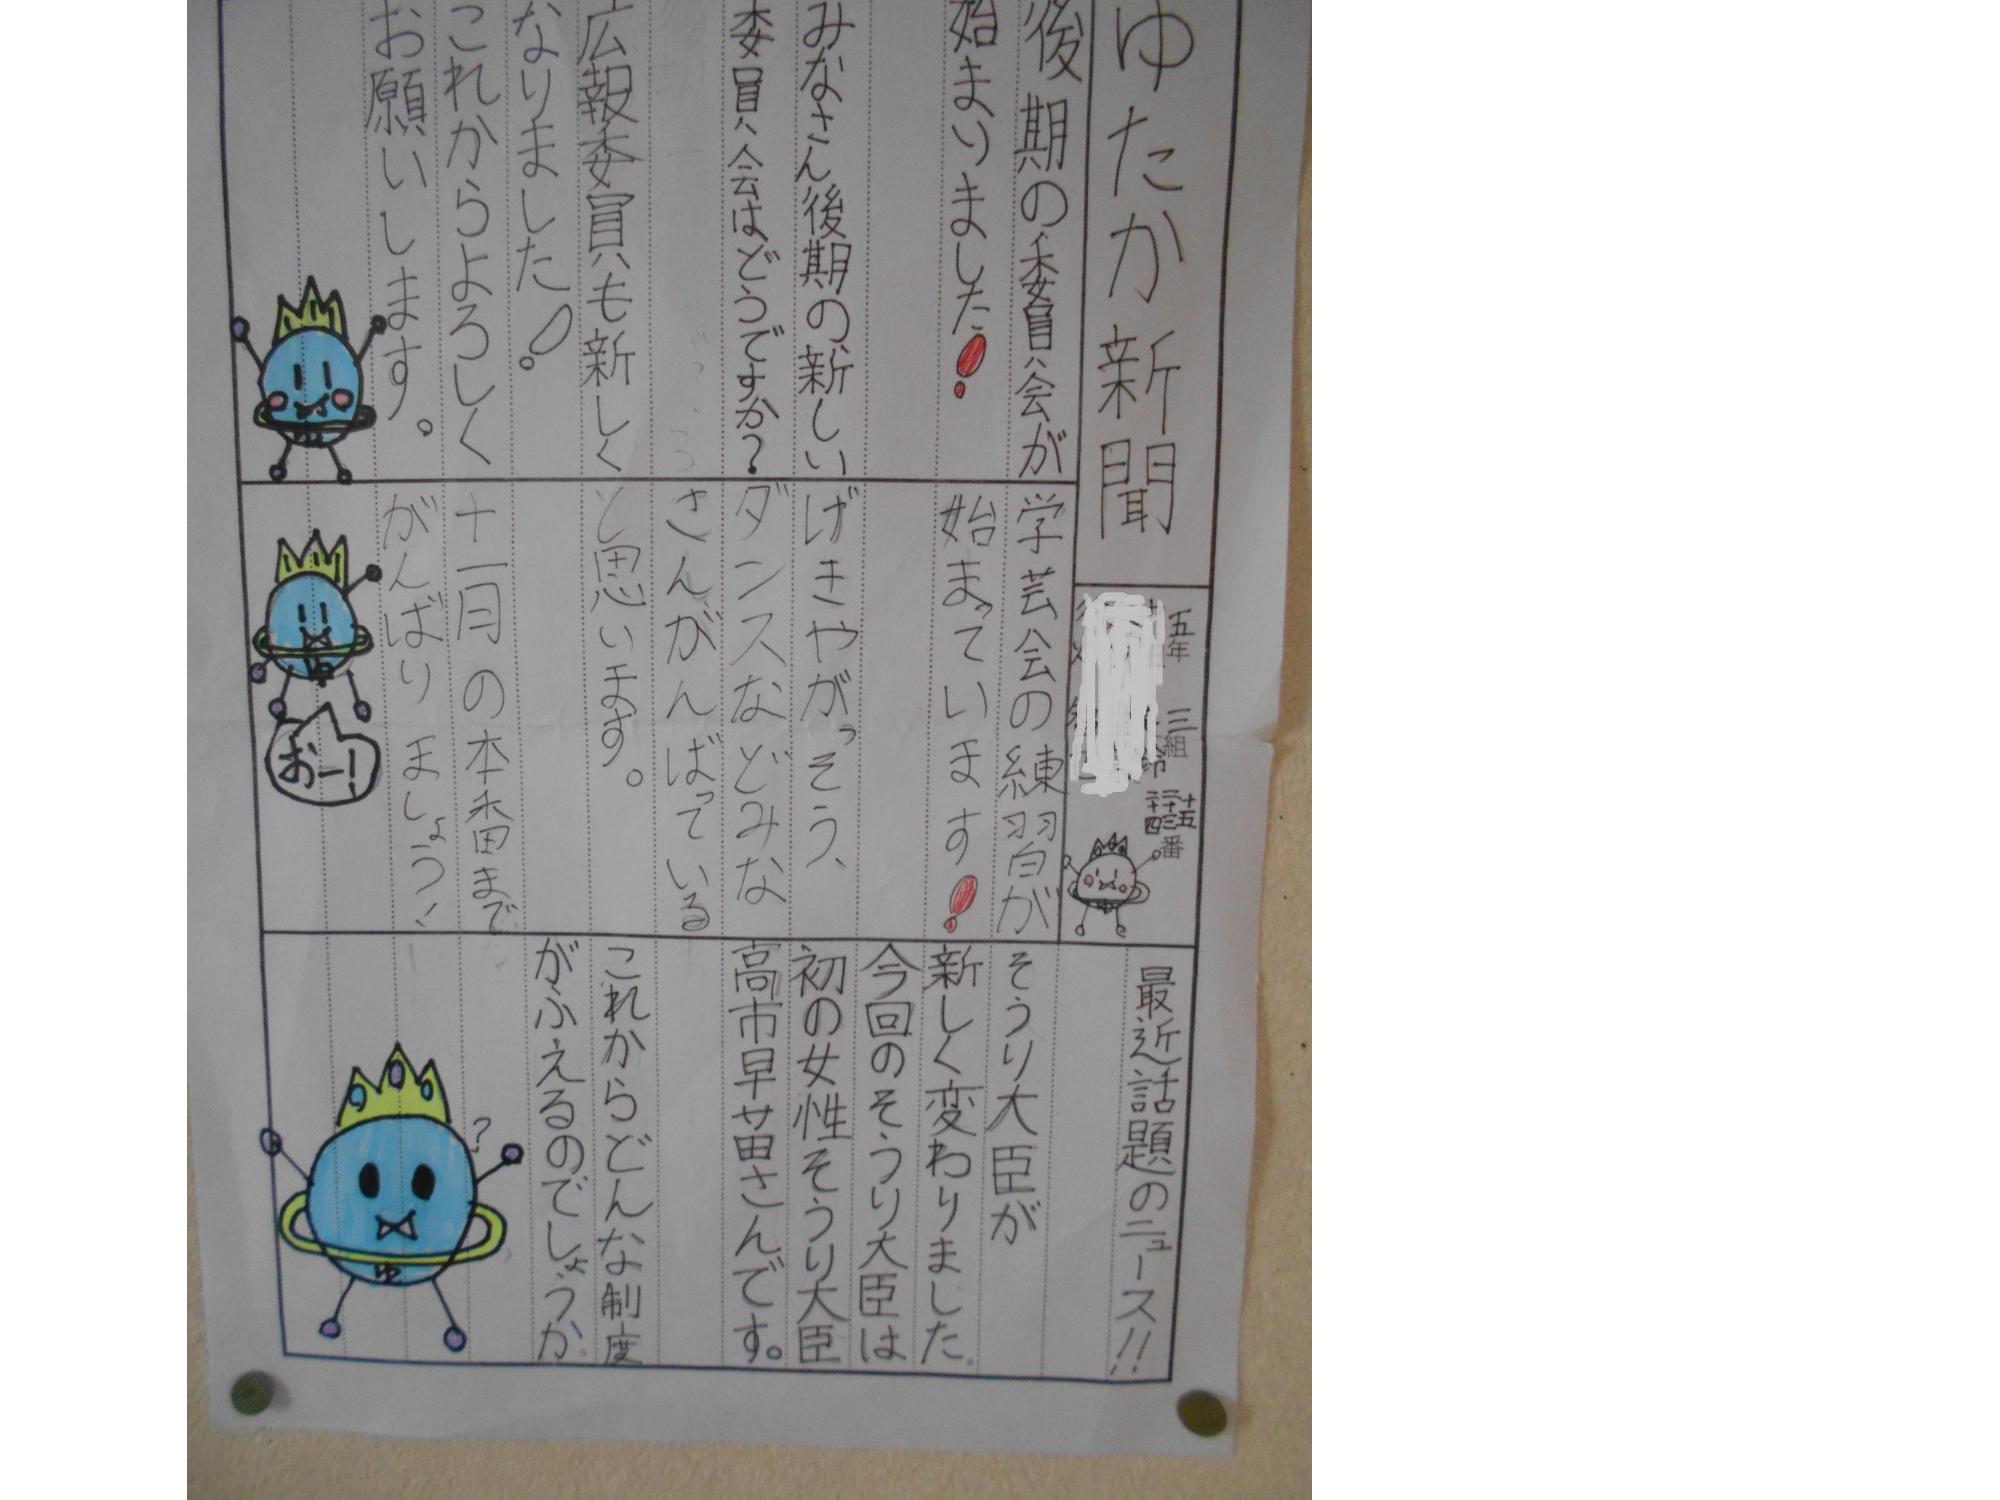 ゆたか新聞
五年 三組 十五 二十三 二十四 番
後期の委員会が
始まりました!
みなさん後期の新しい
委員会はどうですか?
広報委員も新しく
なりました!
これからよろしく
お願いします。
学芸会の練習が
始まっています!
げきやがっそう、
ダンスなどみな
さんがんばっている
と思います。
十一月の本番まで
がんばりましょう!
おー!
最近話題のニュース!!
そうり大臣が
新しく変わりました。
今回のそうり大臣は
初の女性そうり大臣
高市早苗さんです。
これからどんな制度
がふえるのでしょうか。
?
ゆ